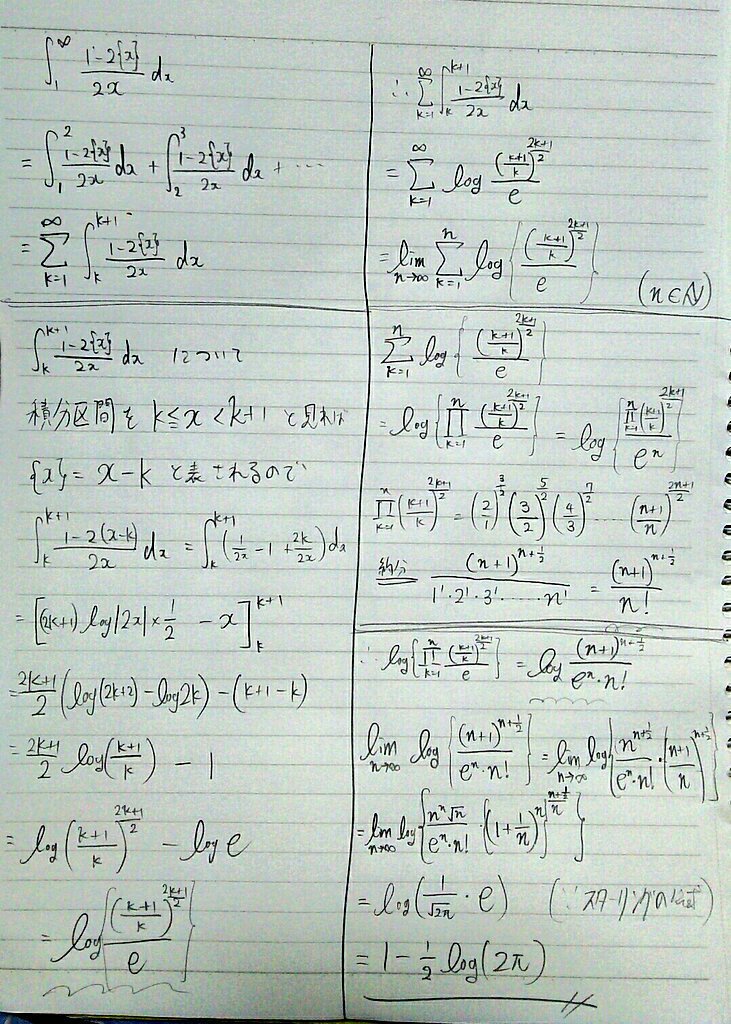 ∫₁^∞ (1-2{x})/(2x) dx
= ∫₁² (1-2{x})/(2x) dx + ∫₂³ (1-2{x})/(2x) dx + ⋯
= ∑_{k=1}^∞ ∫_k^{k+1} (1-2{x})/(2x) dx
∫_k^{k+1} (1-2{x})/(2x) dx について
積分区間を k≦x<k+1 と見れば
{x} = x-k と表されるので
∫_k^{k+1} (1-2(x-k))/(2x) dx = ∫_k^{k+1} (1/(2x) - 1 + 2k/(2x)) dx
= [(2k+1) log|2x| × 1/2 - x]_k^{k+1}
= (2k+1)/2 (log(2k+2) - log2k) - (k+1-k)
= (2k+1)/2 log((k+1)/k) - 1
= log((k+1)/k)^{(2k+1)/2} - log e
= log{((k+1)/k)^{(2k+1)/2} / e}
∴ ∑_{k=1}^∞ ∫_k^{k+1} (1-2{x})/(2x) dx
= ∑_{k=1}^∞ log ((k+1)/k)^{(2k+1)/2} / e
= lim_{n→∞} ∑_{k=1}^n log{((k+1)/k)^{(2k+1)/2} / e} (n∈ℕ)
∑_{k=1}^n log{((k+1)/k)^{(2k+1)/2} / e}
= log{∏_{k=1}^n ((k+1)/k)^{(2k+1)/2} / e} = log{∏_{k=1}^n ((k+1)/k)^{(2k+1)/2} / eⁿ}
∏_{k=1}^n ((k+1)/k)^{(2k+1)/2} = (2/1)^{3/2} (3/2)^{5/2} (4/3)^{7/2} ⋯ ((n+1)/n)^{(2n+1)/2}
約分 (n+1)^{n+1/2} / (1¹・2¹・3¹・⋯・n¹) = (n+1)^{n+1/2} / n!
∴ log{∏_{k=1}^n ((k+1)/k)^{(2k+1)/2} / e} = log (n+1)^{n+1/2} / (eⁿ・n!)
lim_{n→∞} log{(n+1)^{n+1/2} / (eⁿ・n!)} = lim_{n→∞} log{n^{n+1/2} / (eⁿ・n!) ・ ((n+1)/n)^{n+1/2}}
= lim_{n→∞} log{nⁿ√n / (eⁿ・n!) ・ {(1+1/n)ⁿ}^{(n+1/2)/n}}
= log(1/√2π ・ e) (∵スターリングの公式)
= 1 - 1/2 log(2π)